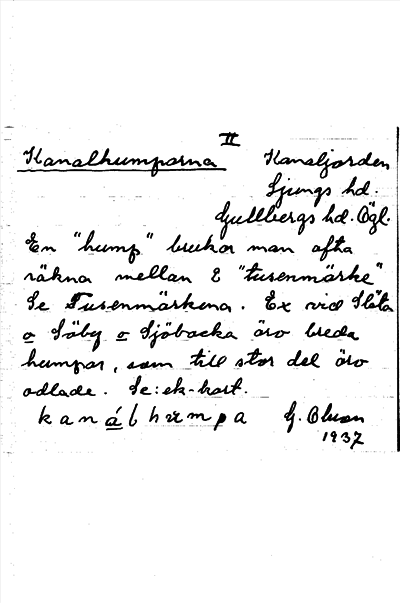 II
Kanalhumparna Kanaljorden
Ljungs hd.
Gullbergs hd. Ögl.
En "hump" brukar man ofta
räkna mellan 2 "tusenmärke"
Se Tusenmärkena. Ex vid Slåta
o Säby o Sjöbacka äro breda
humpar, som till stor del äro
odlade. Se: ek-kart.
kanálhumpa G.
1937